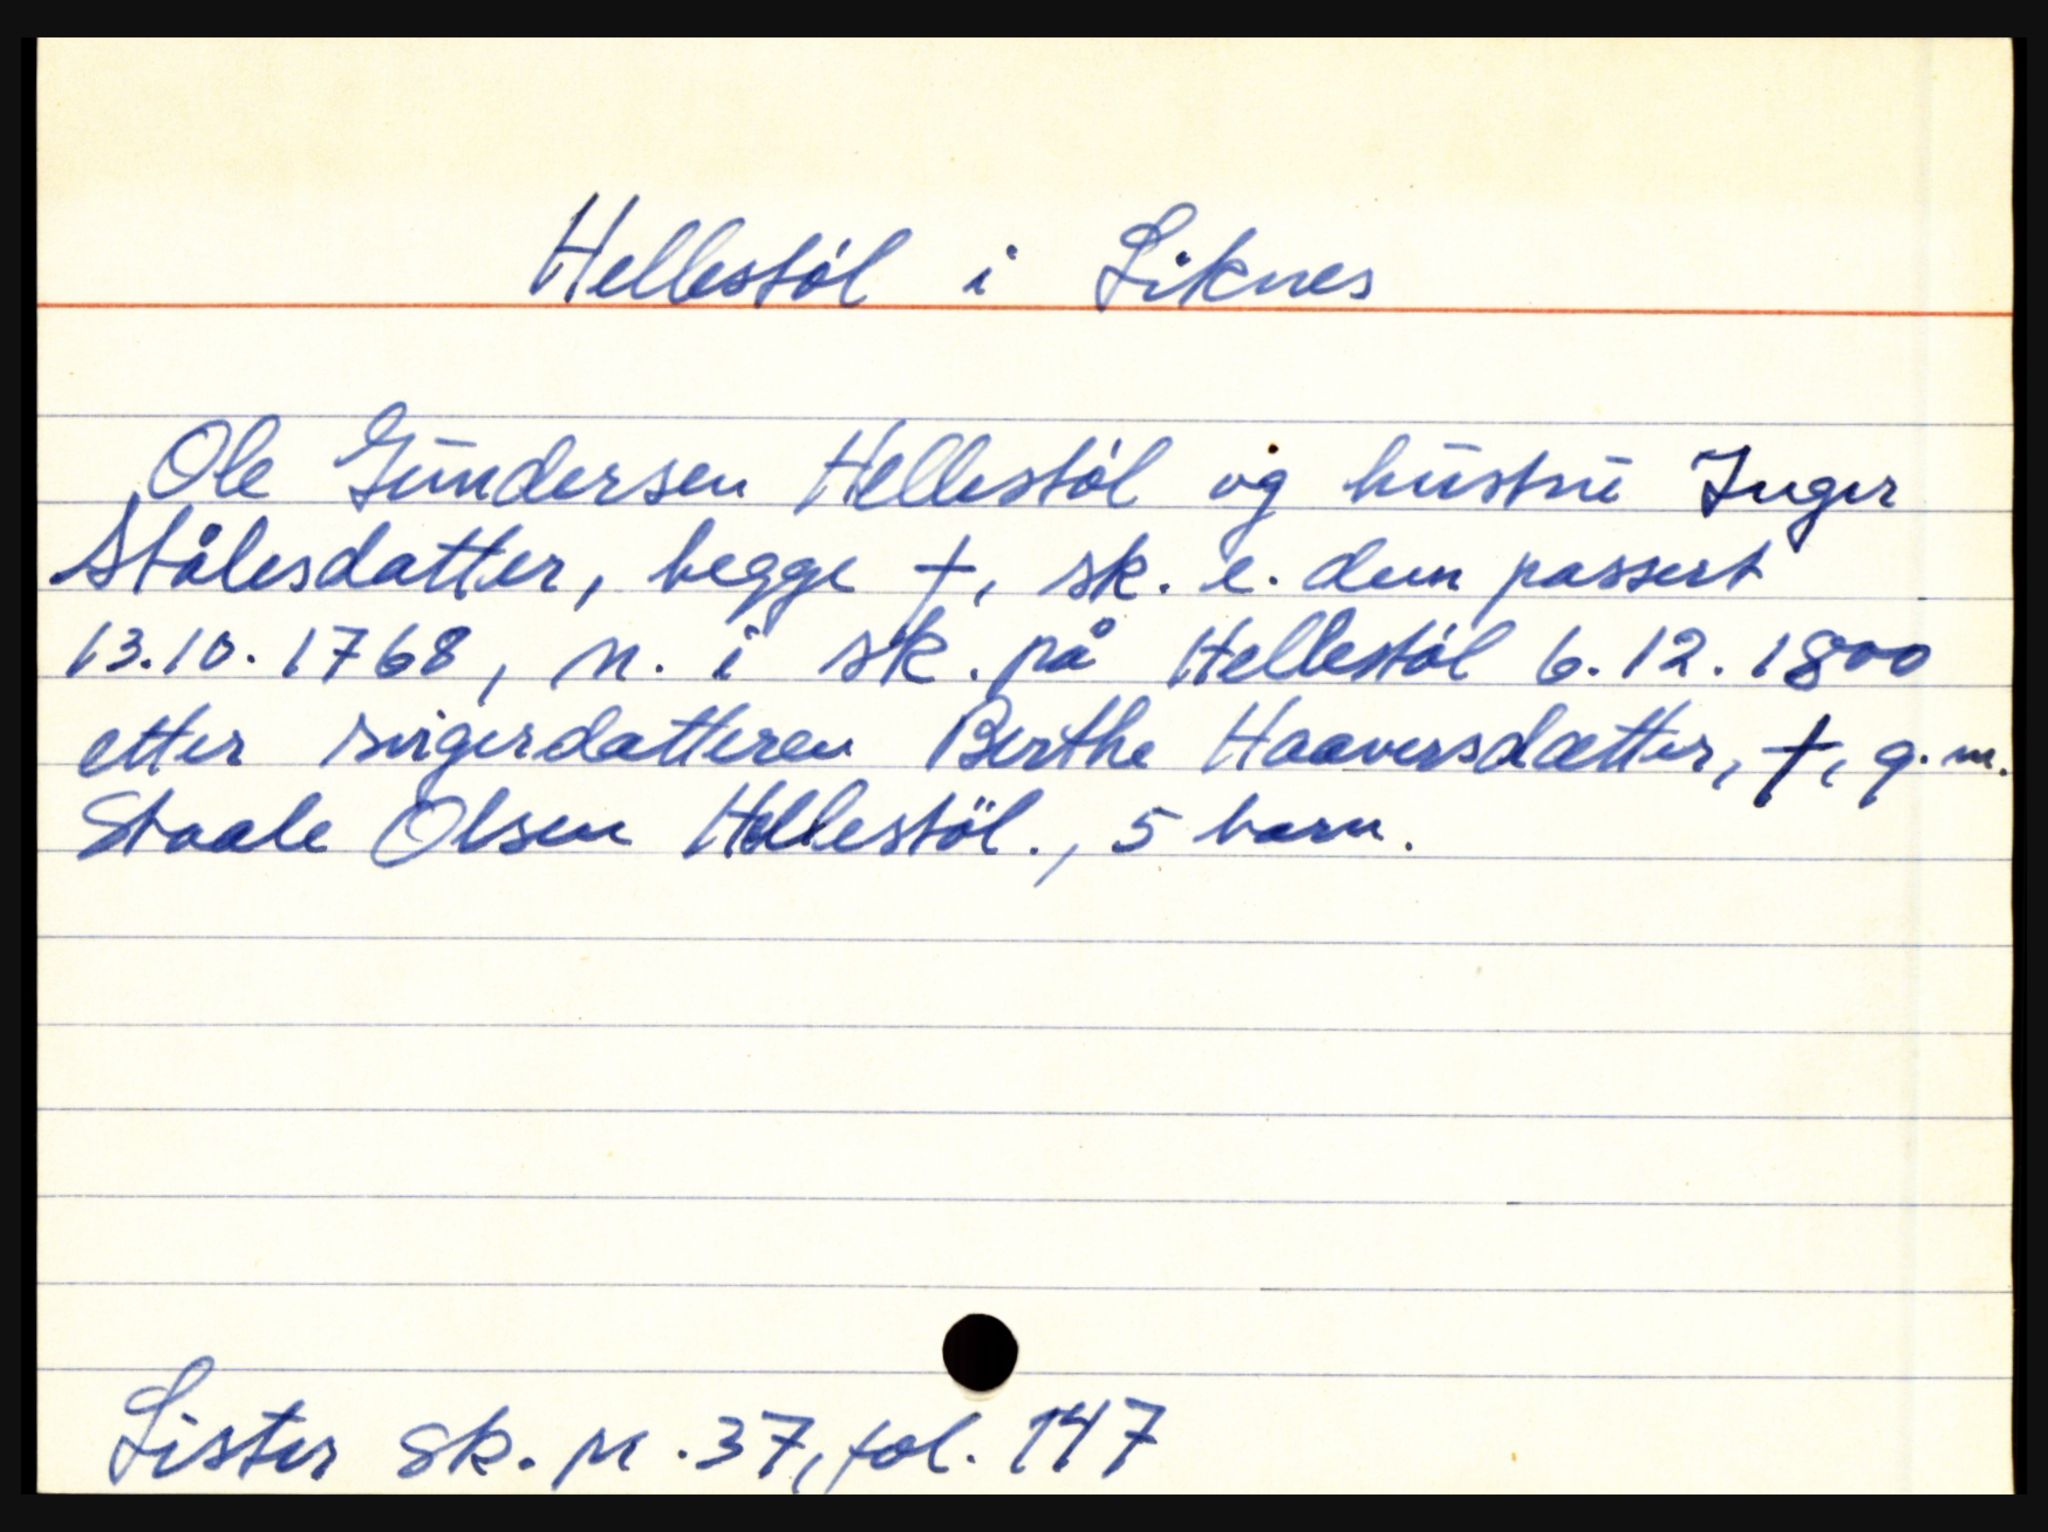 Hellestøl i Liknes
Ole Gundersen Hellestøl og hustru Inger
Stålesdatter, begge †, sk. e. dem passert
13.10.1768, n. i sk. på Hellestøl 6.12.1800
etter svigerdatteren Berthe Haaversdatter, †, g.m.
Staale Olsen Hellestøl., 5 barn.
Lister sk. pr. 37, fol. 147